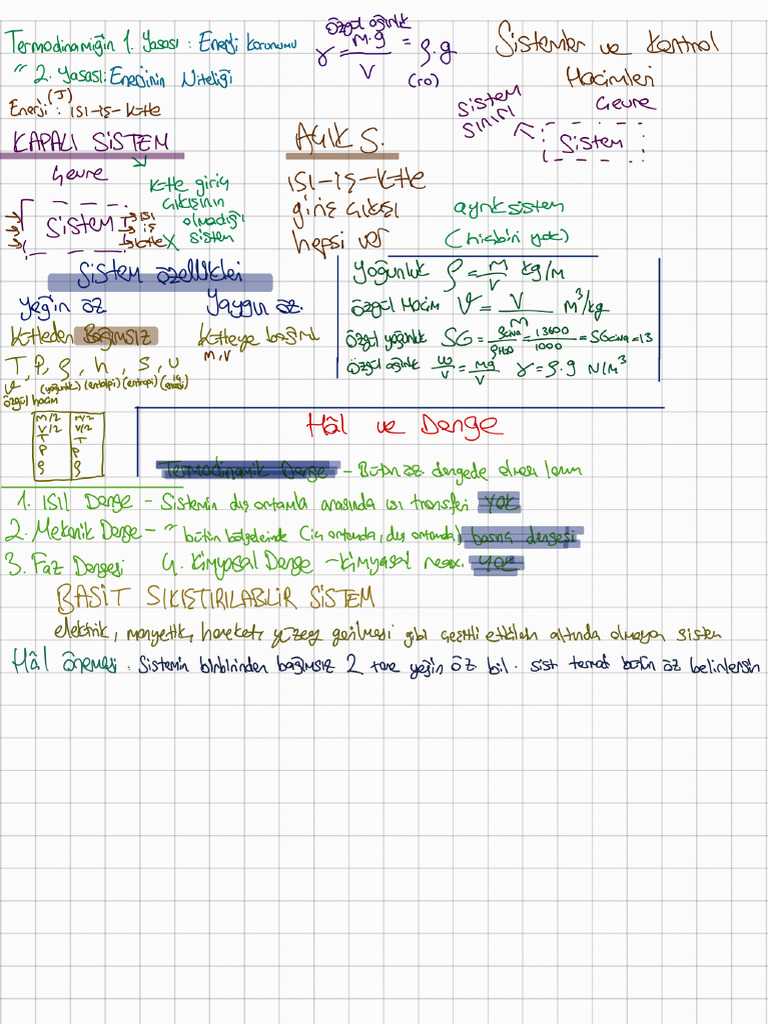 Termodinamiğin 1. Yasası : Enerji Korunumu
" 2. Yasası: Enerjinin Niteliği
(J)
Enerji : ısı-iş-kütle
özgül ağırlık
γ = m.g / V = ρ.g
(ro)
Sistemler ve Kontrol
Hacimleri
Çevre
Sistem
Sınırı
Sistem
KAPALI SİSTEM
Çevre
Sistem
→ ısı
→ iş
→ kütle X
Kütle giriş
çıkışının
olmadığı
sistem
AÇIK S.
ısı-iş-kütle
giriş çıkışı
hepsi var
ayrık sistem
(hiçbiri yok)
Sistem özellikleri
yeğin öz
Yaygın öz.
Kütleden Bağımsız
Kütleye bağıml
m, v
T, P, ρ, h, s, u
(yoğunluk) (entalpi) (entropi) (iç enerji)
ϑ
özgül hacim
m/2 m/2
V/2 V/2
T T
P P
ρ ρ
Yoğunluk ρ = m / V kg/m
özgül Hacim ϑ = V / m m³/kg
özgül yoğunluk SG = ρcıva / ρH2O = 13600 / 1000 = SGcıva = 13
özgül ağırlık w / V = mg / V γ = ρ.g N/m³
Hâl ve Denge
Termodinamik Denge - Bütün öz dengede olması lazım
1. Isıl Denge - Sistemin dış ortamla arasında ısı transferi yok
2. Mekanik Denge - " bütün bölgelerinde (iç ortamda, dış ortamda) basınç dengesi
3. Faz Dengesi 4. Kimyasal Denge - kimyasal reax. yok
BASİT SIKIŞTIRILABİLİR SİSTEM
elektrik, manyetik, hareket, yüzey gerilmesi gibi çeşitli etkiler altında olmayan sistem
Hâl önemesi : Sistemin birbirinden bağımsız 2 tane yeğin öz bil. sist termod bütün öz belirlersin